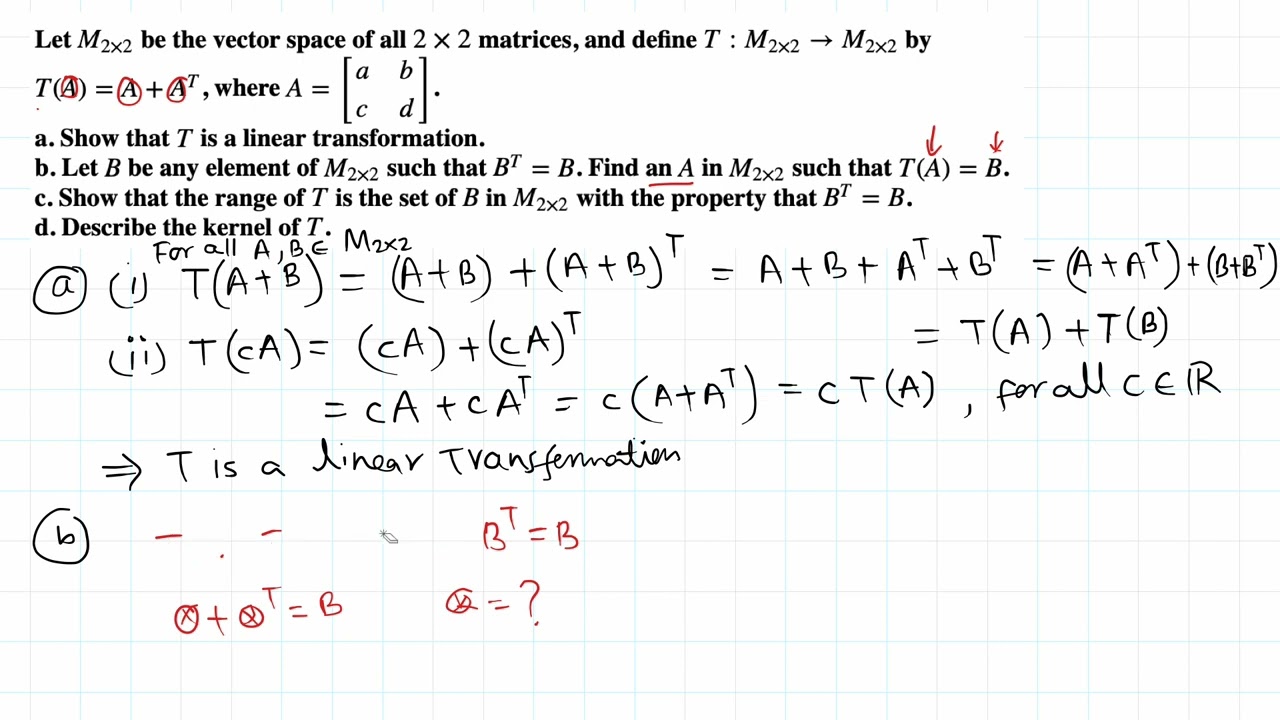 Let M₂ₓ₂ be the vector space of all 2 × 2 matrices, and define T : M₂ₓ₂ → M₂ₓ₂ by
T(A) = A + Aᵀ, where A = [a b
c d].
a. Show that T is a linear transformation.
b. Let B be any element of M₂ₓ₂ such that Bᵀ = B. Find an A in M₂ₓ₂ such that T(A) = B.
c. Show that the range of T is the set of B in M₂ₓ₂ with the property that Bᵀ = B.
d. Describe the kernel of T.
For all A, B ∈ M₂ₓ₂
(a) (i) T(A+B) = (A+B) + (A+B)ᵀ = A + B + Aᵀ + Bᵀ = (A + Aᵀ) + (B+Bᵀ)
= T(A) + T(B)
(ii) T(cA) = (cA) + (cA)ᵀ
= cA + cAᵀ = c(A+Aᵀ) = c T(A) , for all c ∈ ℝ
⇒ T is a linear Transformation
(b) Bᵀ = B
⊗ + ⊗ᵀ = B ⊗ = ?